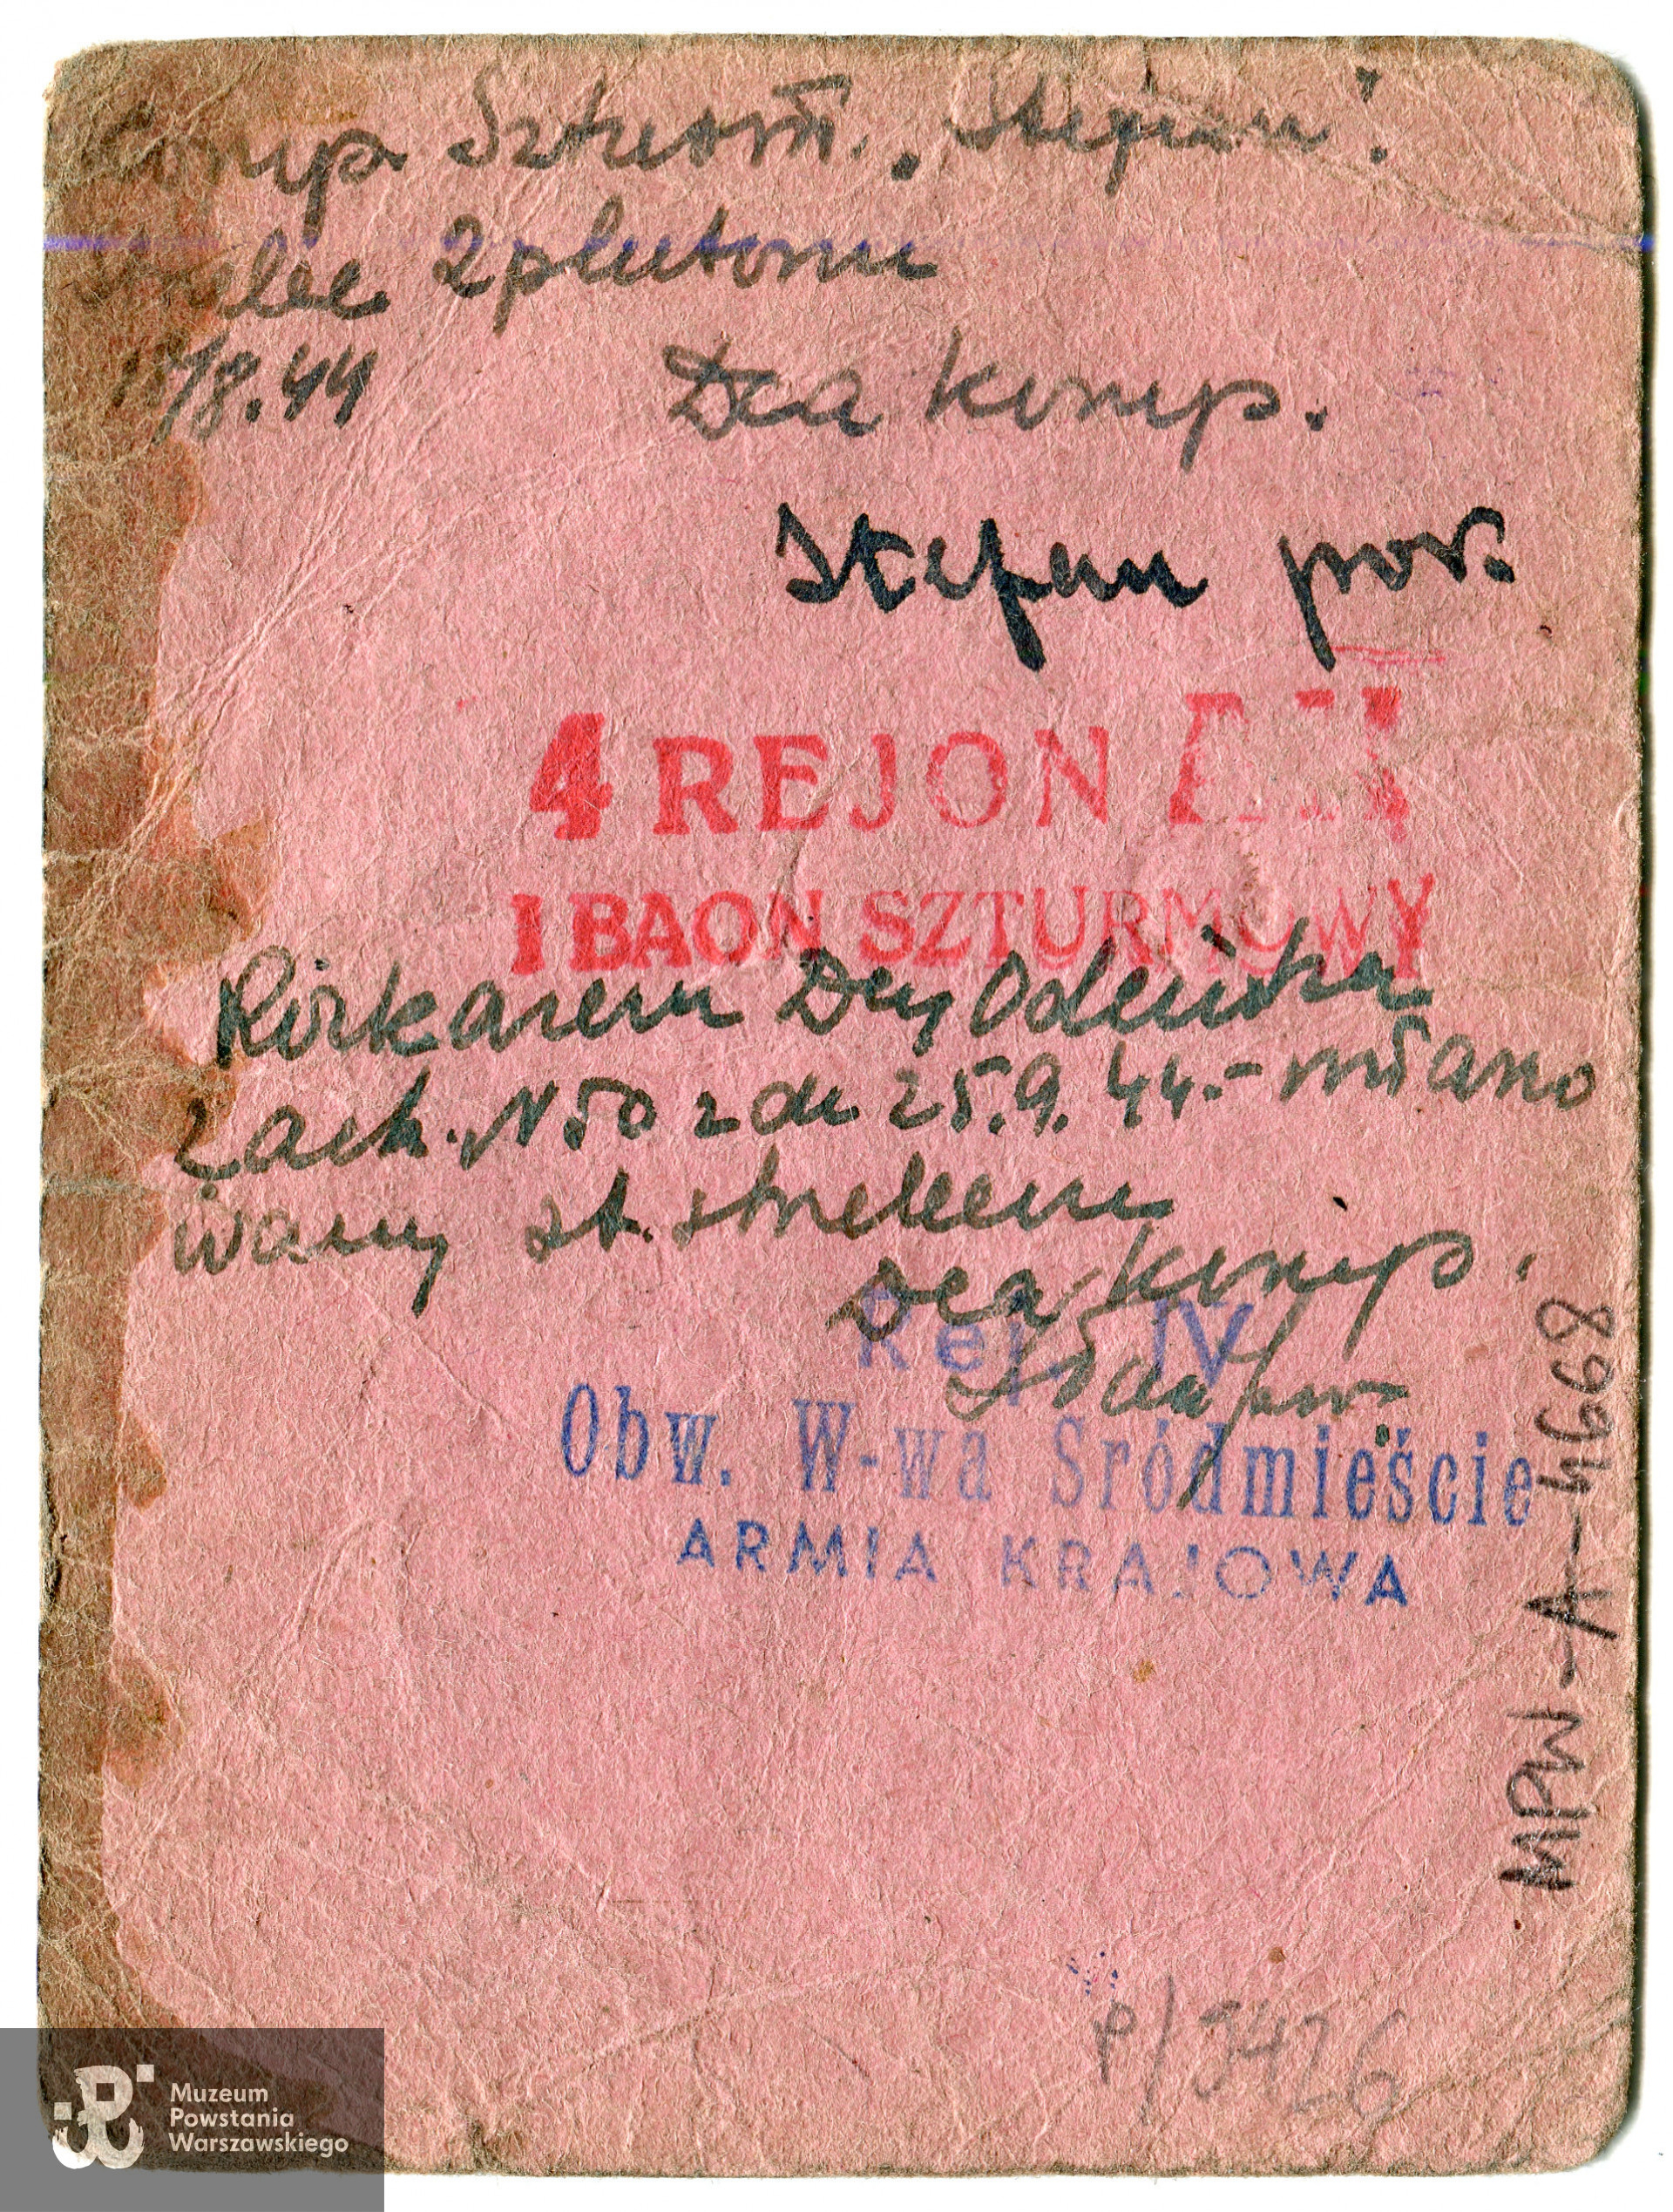 Komp. Szturm. "Stefan".
strzelec 2 plutonu
18.44
Dca komp.
Stefan por.
4 REJON AK
I BAON SZTURMOWY
Rozkazem Dcy Odcinka
Zach. N 50 z dn 25.9.44.- miano
wany st. strzelcem
Dca komp.
Rej IV
Obw. W-wa Sródmieście
ARMIA KRAJOWA
MPW-A-4668
P/3426
Muzeum
Powstania
Warszawskiego